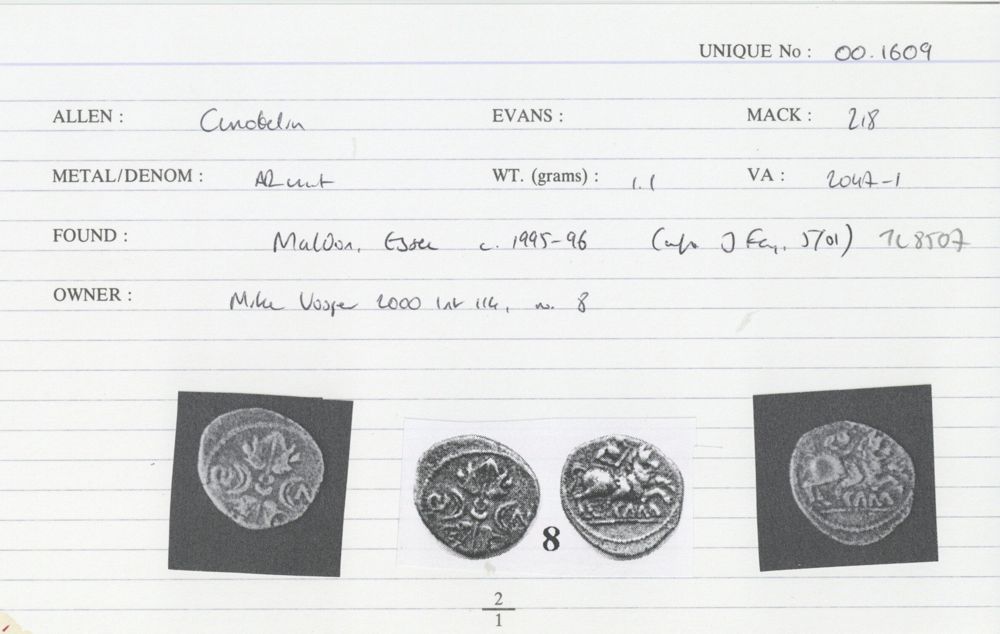 UNIQUE No : 00.1609
ALLEN : Cunobelin EVANS : MACK : 218
METAL/DENOM : AR unit WT. (grams) : 1.1 VA : 2047-1
FOUND : Maldon, Essex c. 1995-96 (info J Fay, 5/01) TL8507
OWNER : Mike Vosper 2000 114, no. 8
8
2
1